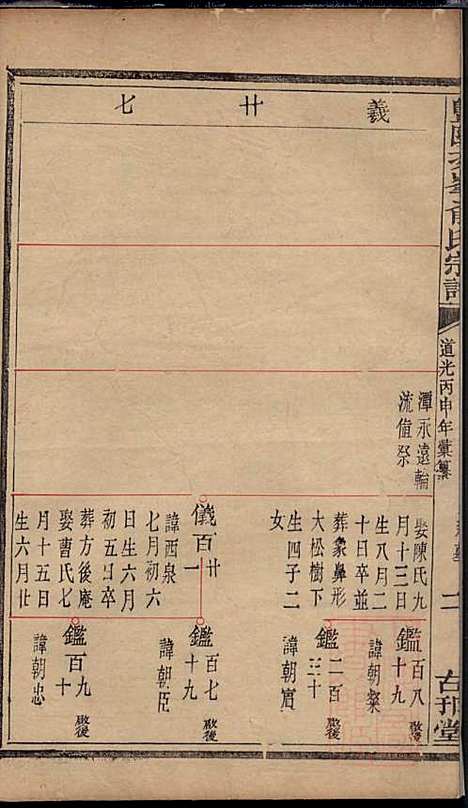 俞氏宗譜
道光丙申年彙纂
二
古邗堂
義
廿
七
潭永遠輪
流值祭
娶陳氏九
月十三日
生八月二
十日卒並
葬象鼻形
大松樹下
生四子二
女
儀百廿
一
諱西泉
七月初六
日生六月
初五日卒
葬方後庵
娶曹氏七
月十五日
生六月廿
鑑百八
十九
諱朝燦
啟後
鑑二百
三十
諱朝賓
鑑百七
十九
諱朝臣
啟後
鑑百九
十
諱朝忠
啟後